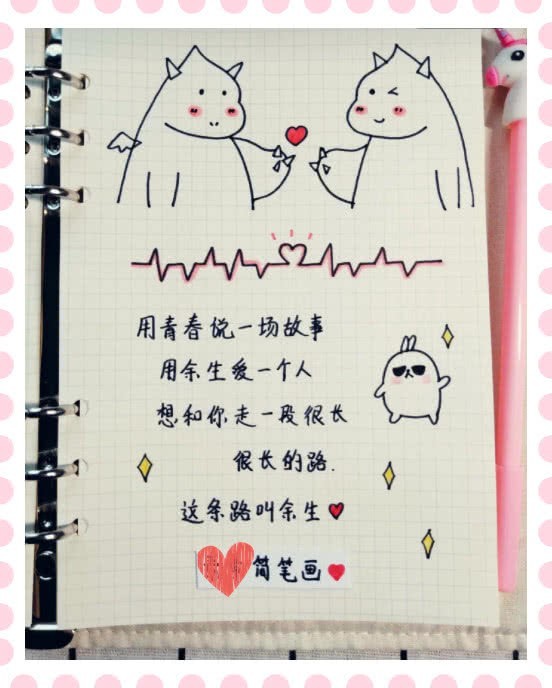 用青春说一场故事
用余生爱一个人
想和你走一段很长
很长的路.
这条路叫余生
简笔画